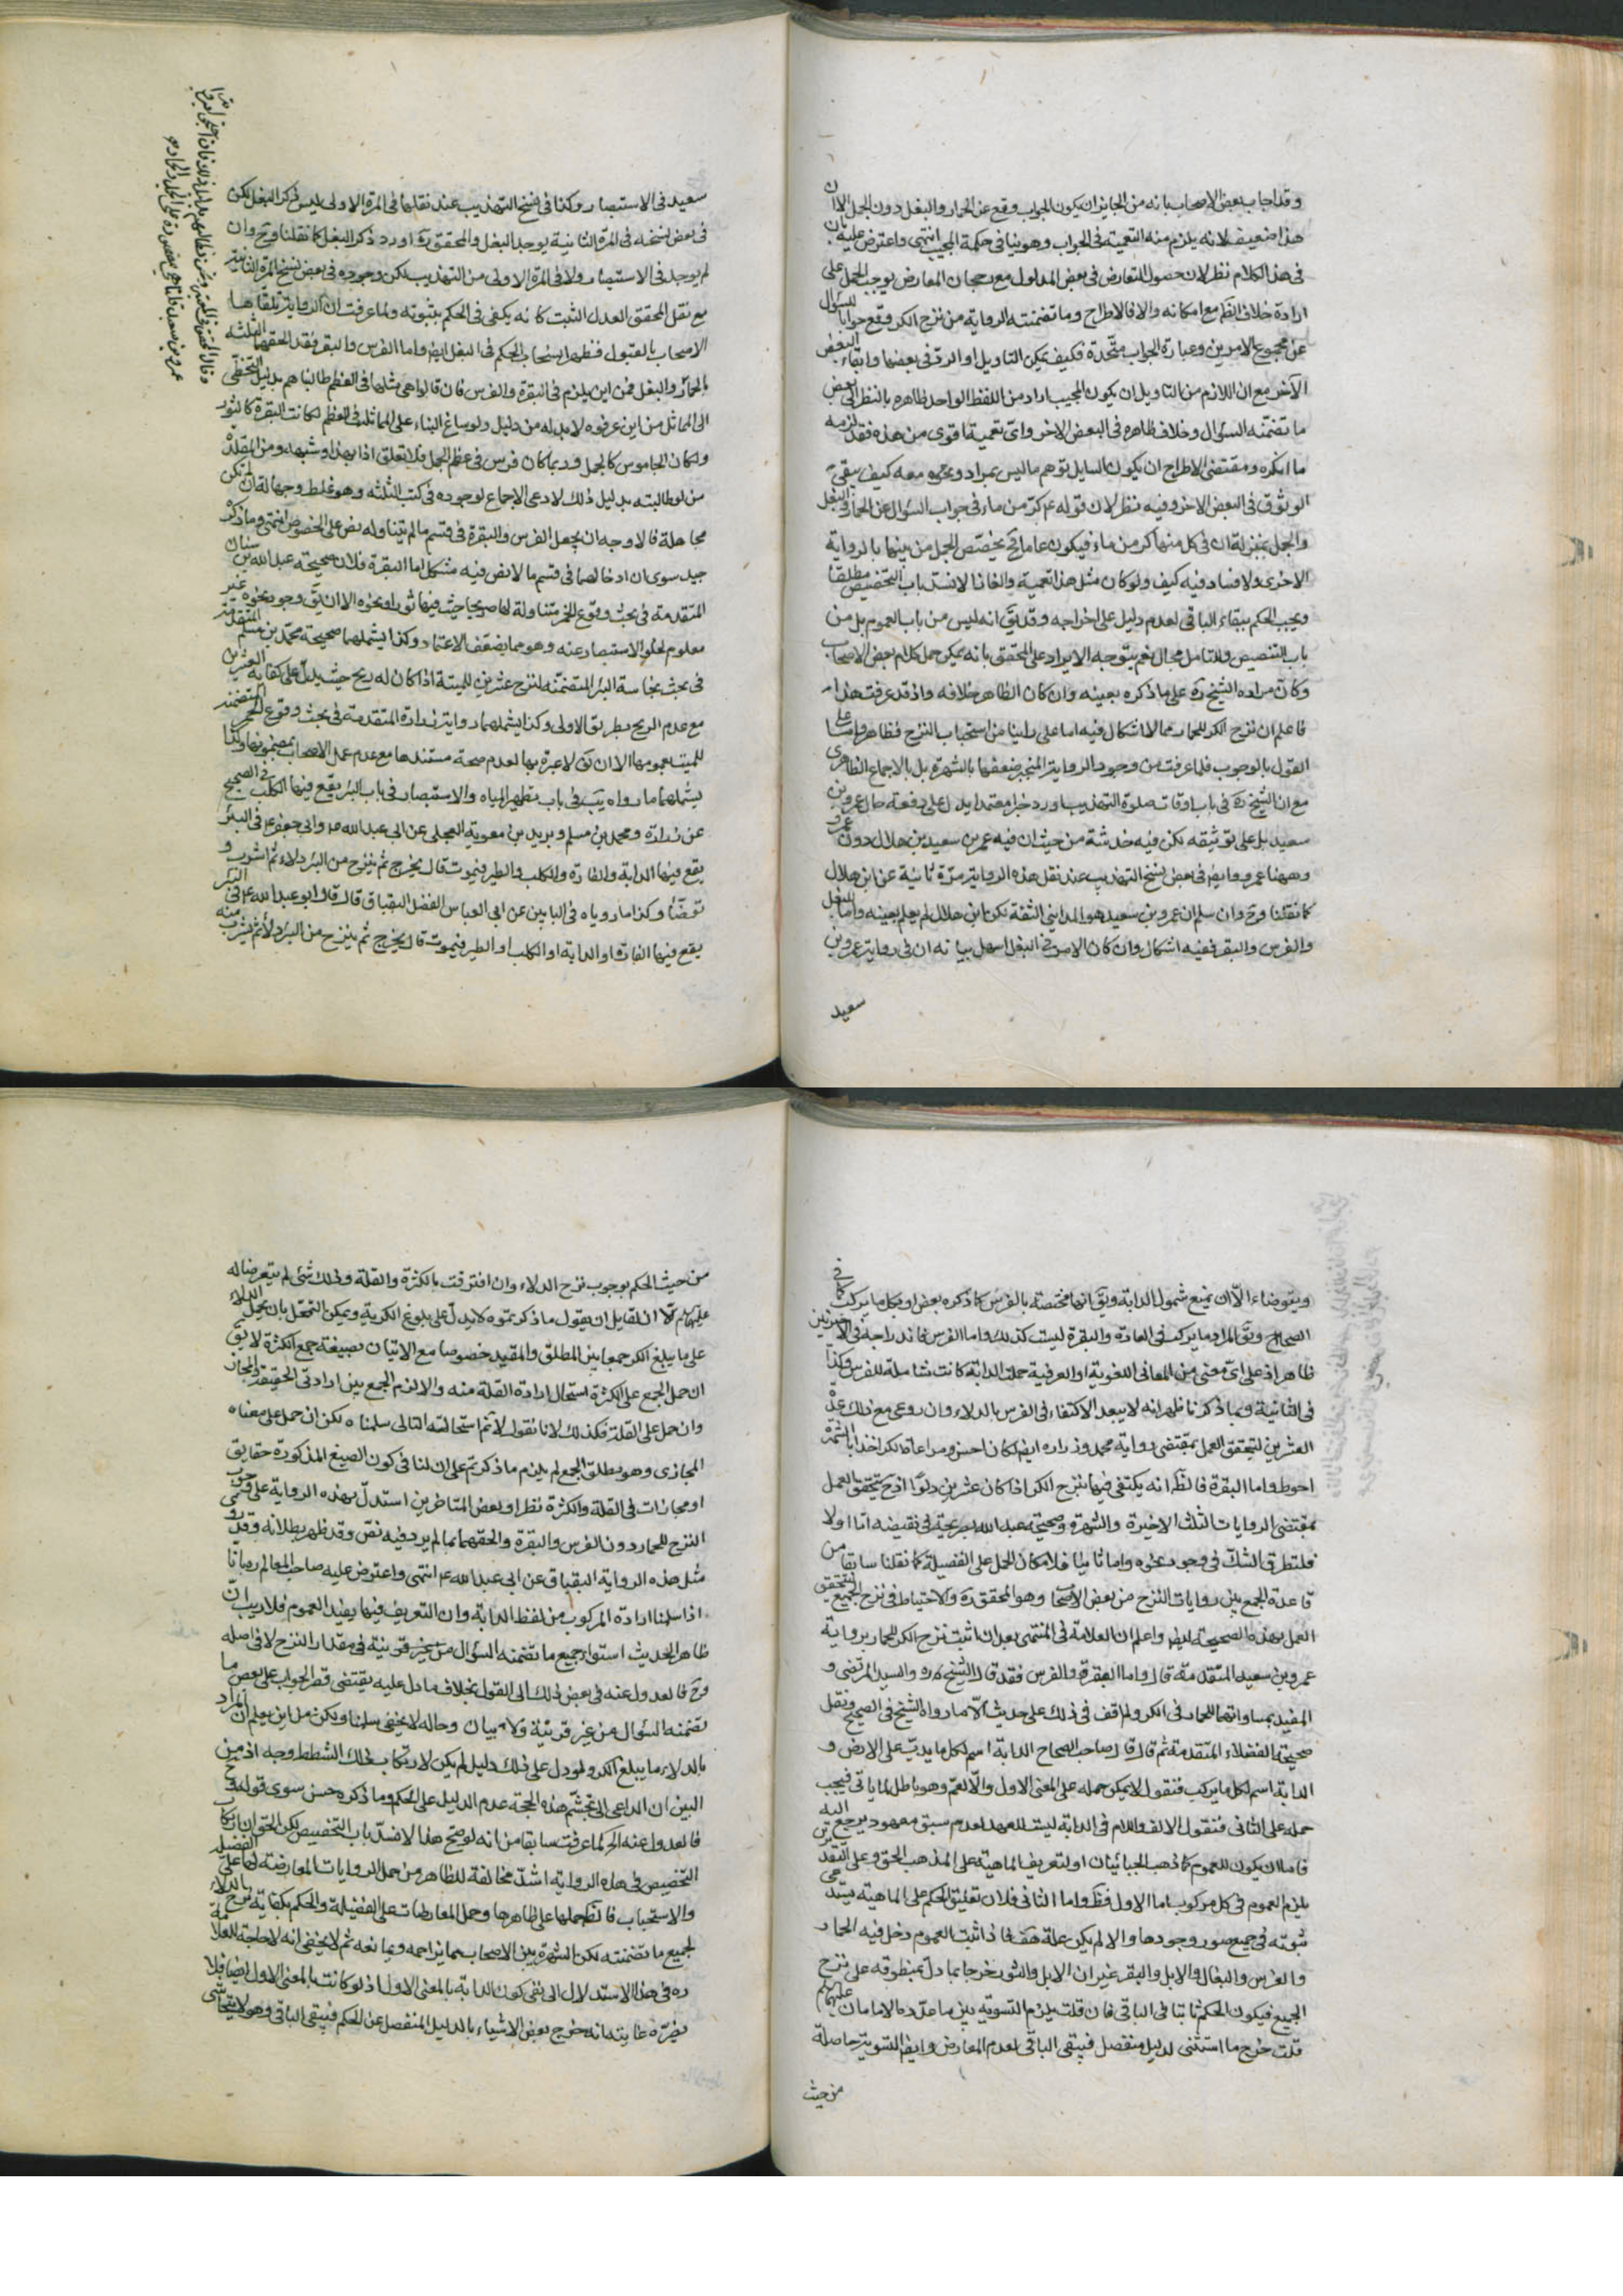 وقد اجاب بعض الاصحاب بانه من الجايز ان يكون الجواب وقع عن الحمار والبغل دون الجمل الا ان
هذا ضعيف لانه يلزم منه التعمية في الجواب وهو ينافي حكمة المجيب انتهى واعترض عليه بان
في هذا الكلام نظر لان حصول التعارض في بعض المدلول مع رجحان المعارض يوجب الحمل على
ارادة خلاف الظ مع امكانه والا فالاطراح وما تضمنته الرواية من نزح الكر وقع جوابا للسؤال
عن مجموع الامرين وعبارة الجواب متحدة فكيف يمكن التاويل او الرد في بعضها وابقاء البعض
الآخر مع ان اللازم من التاويل ان يكون المجيب اراد من اللفظ الواحد ظاهره بالنظر الى بعض
ما تضمنه السؤال وخلاف ظاهره في البعض الاخر واي تعمية اقوى من هذه فقد لزمه
ما انكره ومقتضى الاطراح ان يكون السايل توهم ما ليس بمراد ومعه كيف يبقى
الوثوق في البعض الاخر وفيه نظر لان قوله ع كر من ماء في جواب السؤال عن الحمار والبغل
والجمل بمنزلة ان في كل منها كر من ماء فيكون عاما وح يخصص الجمل من بينها بالرواية
الاخرى ولا فساد فيه كيف ولو كان مثل هذا تعمية والغازا لانسد باب التخصيص مطلقا
ويجب الحكم ببقاء الباقي لعدم دليل على اخراجه وقد يق انه ليس من باب العموم بل من
باب التنصيص وللتامل مجال نعم يتوجه الايراد على المحقق بانه يمكن حمل كلام بعض الاصحاب
وكان مراده الشيخ ره على ما ذكره بعينه وان كان الظاهر خلافه واذ قد عرفت هذا
فاعلم ان نزح الكر للحمار مما لا اشكال فيه اما على راينا من استحباب النزح فظاهر واما على
القول بالوجوب فلما عرفت من وجود الرواية المنجبر ضعفها بالشهرة بل بالاجماع الظاهري
مع ان الشيخ ره في باب اوقات صلوة التهذيب اورد خبرا معتمدا يدل على رفعة حال عمرو بن
سعيد بل على توثيقه لكن فيه خدشة من حيث ان فيه عمر بن سعيد بن هلال دون عمرو
وههنا عمرو وايضا في بعض نسخ التهذيب عند نقل هذه الرواية مرة ثانية عن ابن هلال
كما نقلنا وح وان سلم ان عمرو بن سعيد هو المدايني الثقة لكن ابن هلال لم يعلم بعينه واما البغل
والفرس والبقر ففيه اشكال وان كان الامر في البغل اسهل بيانه ان في رواية عمرو بن
سعيد
سعيد في الاستبصار وكذا في نسخ التهذيب عند نقلها في المرة الاولى ليس ذكر البغل لكن
في بعض نسخه في المرة الثانية يوجد البغل والمحقق ره اورد ذكر البغل كما نقلنا وح وان
لم يوجد في الاستبصار ولا في المرة الاولى من التهذيب لكن وجوده في بعض نسخ المرة الثانية
مع نقل المحقق العدل الثبت كانه يكفي في الحكم بثبوته ولما عرفت ان الرواية تلقاها
الاصحاب بالقبول فظهر انسحاب الحكم في البغل ايضا واما الفرس والبقر فقد الحقهما الثلثة
بالحمار والبغل فمن اين يلزم في البقرة والفرس فان قالوا هي مثلها في العظم طالبناهم بدليل التخطي
الى المماثل من اين عرفوه لا بد له من دليل ولو ساغ البناء على المماثلة في العظم لكانت البقرة كالثور
ولكان الجاموس كالجمل وربما كان فرس في عظم الجمل فلا تعلق اذا بهذا وشبهه ومن المقلدة
من لو طالبته بدليل ذلك لادعى الاجماع لوجوده في كتب الثلثة وهو غلط وجهالة ان لم تكن
تجاهلة فالاوجه ان يجعل الفرس والبقرة في قسم ما لم يتناوله نص على الخصوص انتهى وما ذكره
جيد سوى ان ادخالهما في قسم ما لا نص فيه مشكل اما البقرة فلان صحيحة عبد الله بن سنان
المتقدمة في بحث وقوع الخمر متناولة لها صريحا حيث فيها ثورا ونحوه الا ان يق وجود نحوه غير
معلوم لخلو الاستبصار عنه وهو مما يضعف الاعتماد وكذا يشملهما صحيحة محمد بن مسلم المتقدمة
في بحث نجاسة البئر المتضمنه لنزح عشرين للميتة اذا كان له ريح حيث يدل على كفاية العشرين
مع عدم الريح بطريق الاولى وكذا يشملهما رواية زرارة المتقدمة في بحث وقوع الخمر المتضمنة
للميت بعمومها الا ان يق لا عبرة بها لعدم صحة مستندها مع عدم عمل الاصحاب بمضمونها وكذا
يشملهما ما رواه يب في باب تطهير المياه والاستبصار في باب البئر يقع فيها الكلب في الصحيح
عن زرارة ومحمد بن مسلم وبريد بن معوية العجلي عن ابي عبد الله وابي جعفر ع في البئر
يقع فيها الدابة والفارة والكلب والطير فيموت قال يخرج ثم ينزح من البئر دلاء ثم اشرب و
توضأ وكذا ما روياه في البابين عن ابي العباس الفضل البقباق قال قال ابو عبد الله ع في البئر
يقع فيها الفارة او الدابة او الكلب او الطير فيموت قال يخرج ثم ينزح من البئر دلاء ثم يشرب منه
ويتوضاء الا ان يمنع شمول الدابة ويق انها مختصة بالفرس كما ذكره بعض او بكل ما يركب كما في
الصحاح ويق المراد ما يركب في العادة والبقرة ليست كذلك واما الفرس فاندراجه في الاخيرتين
ظاهر اذ على اي معنى من المعاني اللغوية او العرفية حملت الدابة كانت شاملة للفرس وكذا
في الثانية وبما ذكرنا ظهر انه لا يبعد الاكتفاء في الفرس بالدلاء وان روعي مع ذلك عدد
العشرين لتحقق العمل بمقتضى رواية محمد وزرارة ايضا كان احسن ومراعاة الكر اخذا بالشهرة
احوط واما البقرة فالظ انه يكتفي فيها بنزح الكر اذا كان عشرين دلوا اذ ح يتحقق العمل
بمقتضى الروايات الثلث الاخيرة والشهرة وصحيحة عبد الله صريحة في نقيضه اما اولا
فلتطرق الشك في وجود نحوه واما ثانيا فلامكان الحمل على الفضيلة كما نقلنا سابقا من
قاعدة الجمع بين روايات النزح من بعض الاصحاب وهو المحقق ره والاحتياط في نزح الجميع ليتحقق
العمل بهذه الصحيحة ايضا واعلم ان العلامة في المنتهى بعد ان اثبت نزح الكر للحمار برواية
عمرو بن سعيد المتقدمة قال واما البقرة والفرس فقد قال الشيخ ره والسيد المرتضى و
المفيد بمساواتهما للحمار في الكر ولم اقف في ذلك على حديث الا ما رواه الشيخ في الصحيح ونقل
صحيحة الفضلاء المتقدمة ثم قال قال صاحب الصحاح الدابة اسم لكل ما يدب على الارض و
الدابة اسم لكل ما يركب فنقول لا يمكن حمله على المعنى الاول والا لعم وهو باطل لما ياتي فيجب
حمله على الثاني فنقول الالف واللام في الدابة ليست للعهد لعدم سبق معهود يرجع اليه
فاما ان يكون للعموم كما ذهب الجبائيان او لتعريف الماهية على المذهب الحق وعلى التقديرين
يلزم العموم في كل مركوب اما الاول فظ واما الثاني فلان تعليق الحكم على الماهية يستدعي
ثبوته في جميع صور وجودها والا لم يكن علة هف فاذا ثبت العموم دخل فيه الحمار
والفرس والبغال والابل والبقر غير ان الابل والثور خرجا بما دل بمنطوقه على نزح
الجميع فيكون الحكم ثابتا في الباقي فان قلت يلزم التسوية بين ما عدده الامامان عليهما السلم
قلت خرج ما استثنى لدليل منفصل فيبقى الباقي لعدم المعارض وايضا التسوية حاصلة
من حيث
من حيث الحكم بوجوب نزح الدلاء وان افترقت بالكثرة والقلة وذلك شئ لم يتعرضا له
عليهما السلم الا ان لقايل ان يقول ما ذكرتموه لا يدل على بلوغ الكرية ويمكن التمحل بان يحمل الدلاء
على ما يبلغ الكر جمعا بين المطلق والمقيد خصوصا مع الاتيان بصيغة جمع الكثرة لا يق
ان حمل الجمع على الكثرة استحال ارادة القلة منه والا لزم الجمع بين ارادتي الحقيقة والمجاز
وان حمل على القلة فكذلك لانا نقول لا نم استحالة التالي سلمناه لكن ان حمل على معناه
المجازي وهو مطلق الجمع لم يلزم ما ذكرتم على ان لنا في كون الصيغ المذكورة حقايق
او مجازات في القلة والكثرة نظرا وبعض المتاخرين استدل بهذه الرواية على
النزح للحمار دون الفرس والبقرة والحقهما بما لم يرد فيه نص وقد ظهر بطلانه وقد روى
مثل هذه الرواية البقباق عن ابي عبد الله ع انتهى واعترض عليه صاحب المعالم ره بانا
اذا سلمنا ارادة المركوب من لفظ الدابة وان التعريف فيها يفيد العموم فلا ريب ان
ظاهر الحديث استواء جميع ما تضمنه السؤال من غير قرينة في مقدار النزح لا في اصله
وح فالعدول عنه في بعض ذلك الى القول بخلاف ما دل عليه يقتضى قصر الجواب على بعض ما
تضمنه السؤال من غير قرينة ولا بيان وحاله لا يخفى سلمنا ولكن من اين يعلم ان المراد
بالدلاء ما يبلغ الكر ولو دل على ذلك دليل لم يكن لارتكاب ذلك الشطط وجه اذ من
البين ان الداعي الى تجشم هذه الحجة عدم الدليل على الحكم وما ذكره حسن سوى قوله وح
فالعدول عنه الخ لما عرفت سابقا من انه لو صح هذا لانسد باب التخصيص لكن الحق ان ارتكاب
التخصيص في هذه الرواية اشد مخالفة للظاهر من حمل الروايات المعارضة لها على الفضيلة
والاستحباب فالظ حملها على ظاهرها وحمل المعارضات على الفضيلة والحكم بكفاية نزح الدلاء
لجميع ما تضمنته لكن الشهرة بين الاصحاب مما يزاحمه ويمانعه ثم لا يخفى انه لا حاجة للعلامة
ره في هذا الاستدلال الى نفي كون الدابة بالمعنى الاول اذ لو كانت بالمعنى الاول ايضا فلا
يضره غايته انه خرج بعض الاشياء بالدليل المنفصل عن الحكم فيبقى الباقي وهو لا يتحاشى